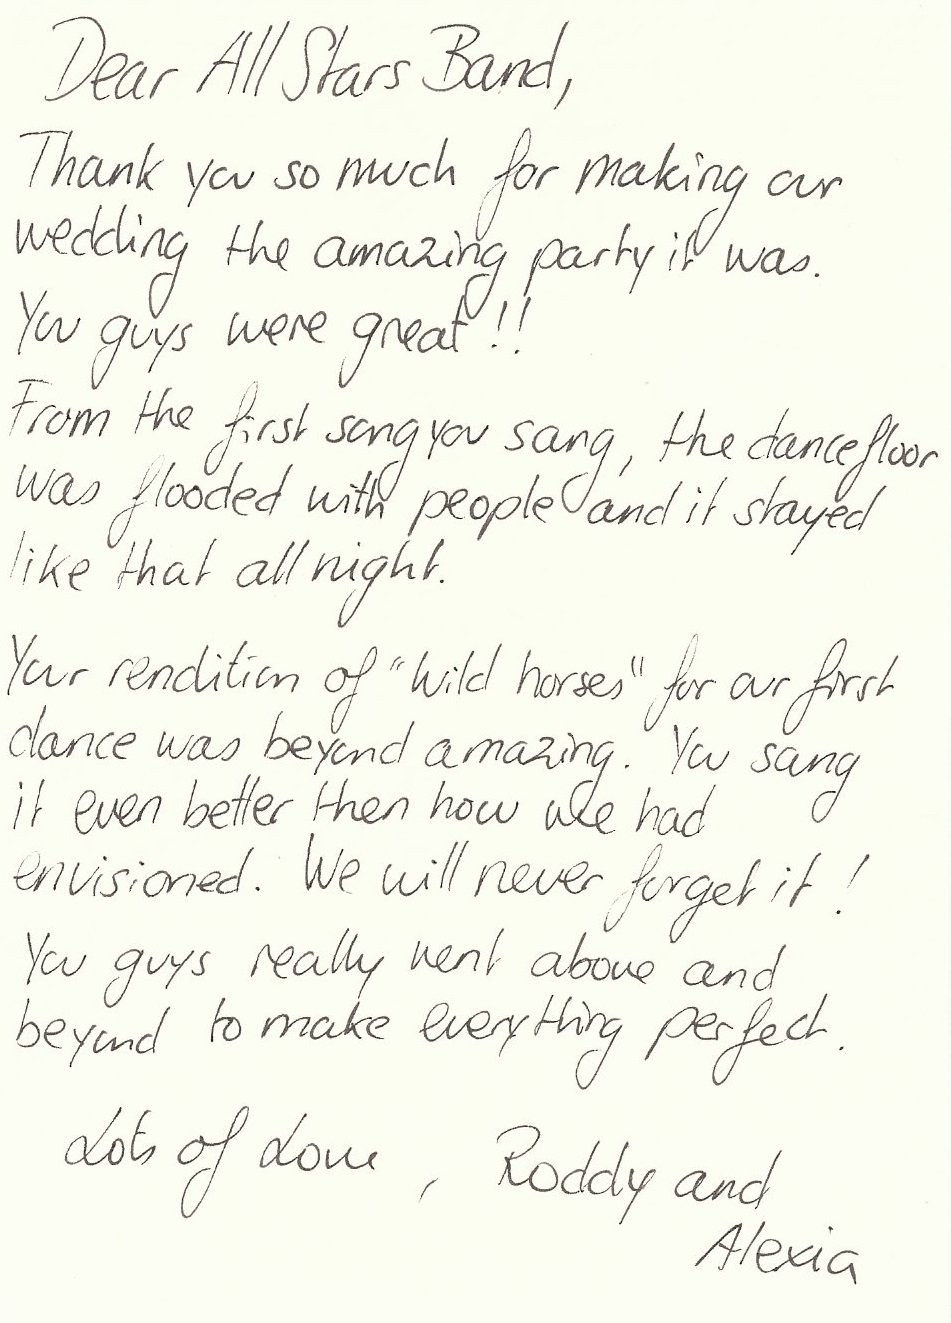 Dear All Stars Band,
Thank you so much for making our
wedding the amazing party it was.
You guys were great!!
From the first song you sang, the dancefloor
was flooded with people and it stayed
like that all night.
Your rendition of "Wild horses" for our first
dance was beyond amazing. You sang
it even better then how we had
envisioned. We will never forget it!
You guys really went above and
beyond to make everything perfect.
Lots of Love, Roddy and
Alexia